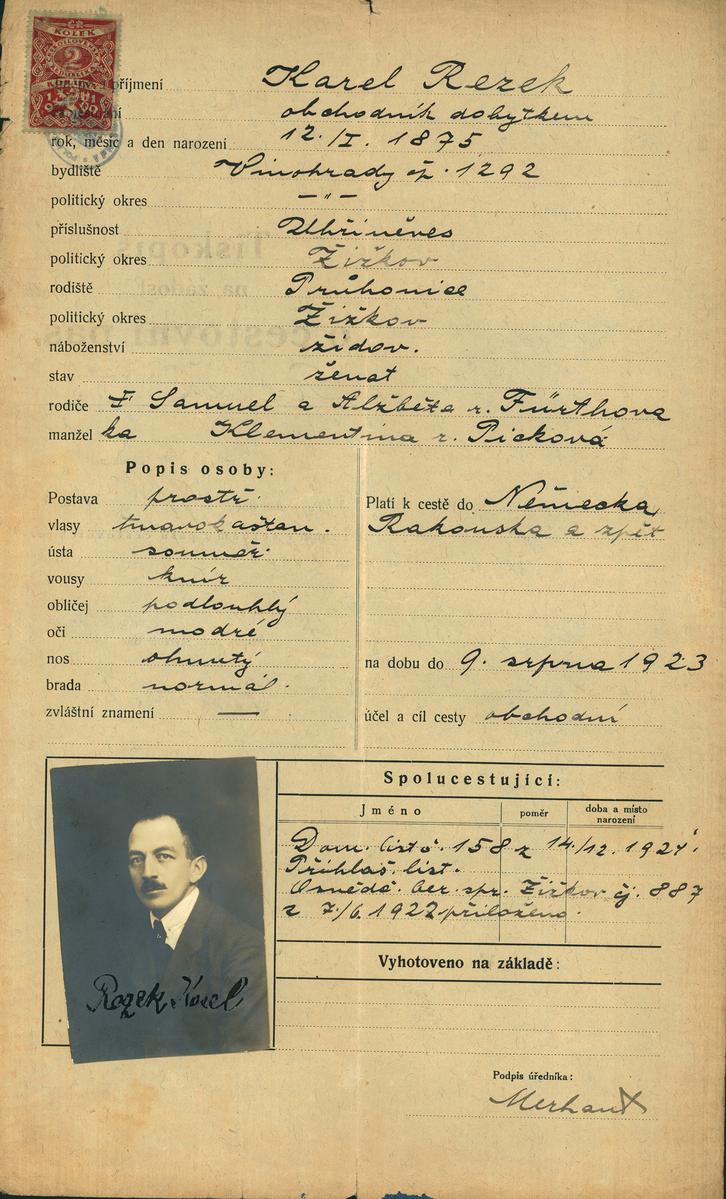 KOLEK
2
příjmení Karel Rezek
obchodník dobytkem
rok, měsíc a den narození 12./I. 1875
bydliště Vinohrady čp. 1292
politický okres —"—
příslušnost Uhříněves
politický okres Žižkov
rodiště Průhonice
politický okres Žižkov
náboženství židov.
stav ženat
rodiče Samuel a Alžběta r. Fürthova
manžel ka Klementina r. Picková
Popis osoby:
Postava prostř.
vlasy tmavokaštan.
ústa souměr.
vousy knír
obličej podlouhlý
oči modré
nos ohnutý
brada normál.
zvláštní znamení —
Platí k cestě do Německa,
Rakouska a zpět
na dobu do 9. srpna 1923
účel a cíl cesty obchodní
Spolucestující:
Jméno poměr doba a místo narození
Dom. list č. 158 z 14/12. 1921
Přihlaš. list.
Osvědč. ber. spr. Žižkov čj. 887
z 7./6. 1922 přiloženo.
Vyhotoveno na základě:
Rezek Karel
Podpis úředníka: